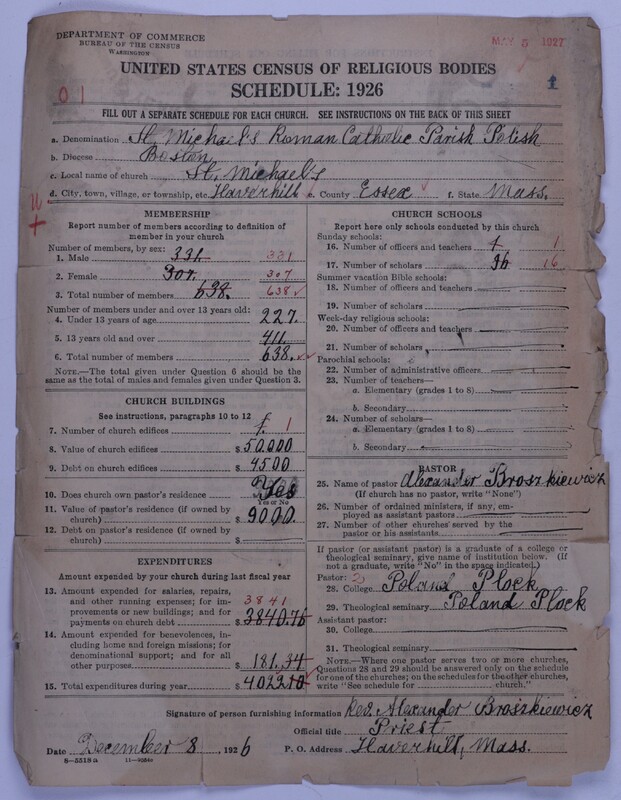 DEPARTMENT OF COMMERCE
BUREAU OF THE CENSUS
WASHINGTON
MAY 5 1927
UNITED STATES CENSUS OF RELIGIOUS BODIES
SCHEDULE: 1926
0 1
1
FILL OUT A SEPARATE SCHEDULE FOR EACH CHURCH. SEE INSTRUCTIONS ON THE BACK OF THIS SHEET
a. Denomination St. Michael's Roman Catholic Parish Polish
b. Diocese Boston
c. Local name of church St. Michael's
d. City, town, village, or township, etc. Haverhill e. County Essex f. State Mass.
MEMBERSHIP
Report number of members according to definition of
member in your church
Number of members, by sex:
1. Male 331. 331
2. Female 307. 307
3. Total number of members 638. 638
Number of members under and over 13 years old:
4. Under 13 years of age 227.
5. 13 years old and over 411.
6. Total number of members 638.
NOTE.—The total given under Question 6 should be the
same as the total of males and females given under Question 3.
CHURCH BUILDINGS
See instructions, paragraphs 10 to 12
7. Number of church edifices 1. 1
8. Value of church edifices $ 50.000
9. Debt on church edifices $ 4500
10. Does church own pastor's residence Yes
Yes or No
11. Value of pastor's residence (if owned by
church) $ 9000.
12. Debt on pastor's residence (if owned by
church) $
EXPENDITURES
Amount expended by church during last fiscal year
13. Amount expended for salaries, repairs,
and other running expenses; for im-
provements or new buildings; and for
payments on church debt $ 3840.76
3841
14. Amount expended for benevolences,
including home and foreign missions; for
denominational support; and for all
other purposes $ 181.34
15. Total expenditures during year $ 4022.10
CHURCH SCHOOLS
Report here only schools conducted by this church
Sunday schools:
16. Number of officers and teachers 1 1
17. Number of scholars 16
Summer vacation Bible schools:
18. Number of officers and teachers
19. Number of scholars
Week-day religious schools:
20. Number of officers and teachers
21. Number of scholars
Parochial schools:
22. Number of administrative officers
23. Number of teachers—
a. Elementary (grades 1 to 8)
b. Secondary
24. Number of scholars—
a. Elementary (grades 1 to 8)
b. Secondary
PASTOR
25. Name of pastor Alexander Broszkiewicz
(If church has no pastor, write "None")
26. Number of ordained ministers, if any, em-
ployed as assistant pastors
27. Number of other churches served by the
pastor or his assistants
If pastor (or assistant pastor) is a graduate of a college or
theological seminary, give name of institution below. (If
not a graduate, write "No" in the space indicated.)
Pastor: 2
28. College Poland Plock
29. Theological seminary Poland Plock
Assistant pastor:
30. College
31. Theological seminary
NOTE.—Where one pastor serves two or more churches,
Questions 28 and 29 should be answered only on the schedule
for one of the churches; on the schedules for the other churches,
write "See schedule for church."
Signature of person furnishing information Rev. Alexander Broszkiewicz
Official title Priest
Date December 8, 1926 P. O. Address Haverhill, Mass.
8—5518 a